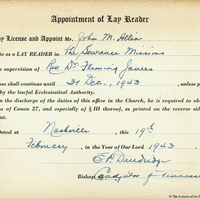 Appointment of Lay Reader
y License and Appoint Mr. John M. Allin
e as a LAY READER in The Sewanee Missions
e supervision of Rev. Dr. Fleming James
s shall continue until 31 Dec., 1943, unless
by lawful Ecclesiastical Authority.
n the discharge of the duties of this office in the Church, he is required to ob
s of Canon 27, and especially of § III thereof, as printed on the reverse side
icense.
Dated at Nashville this 19th
February, in the Year of our Lord 1943
E.P. Dandridge
Bishop Coadjutor of Tennessee